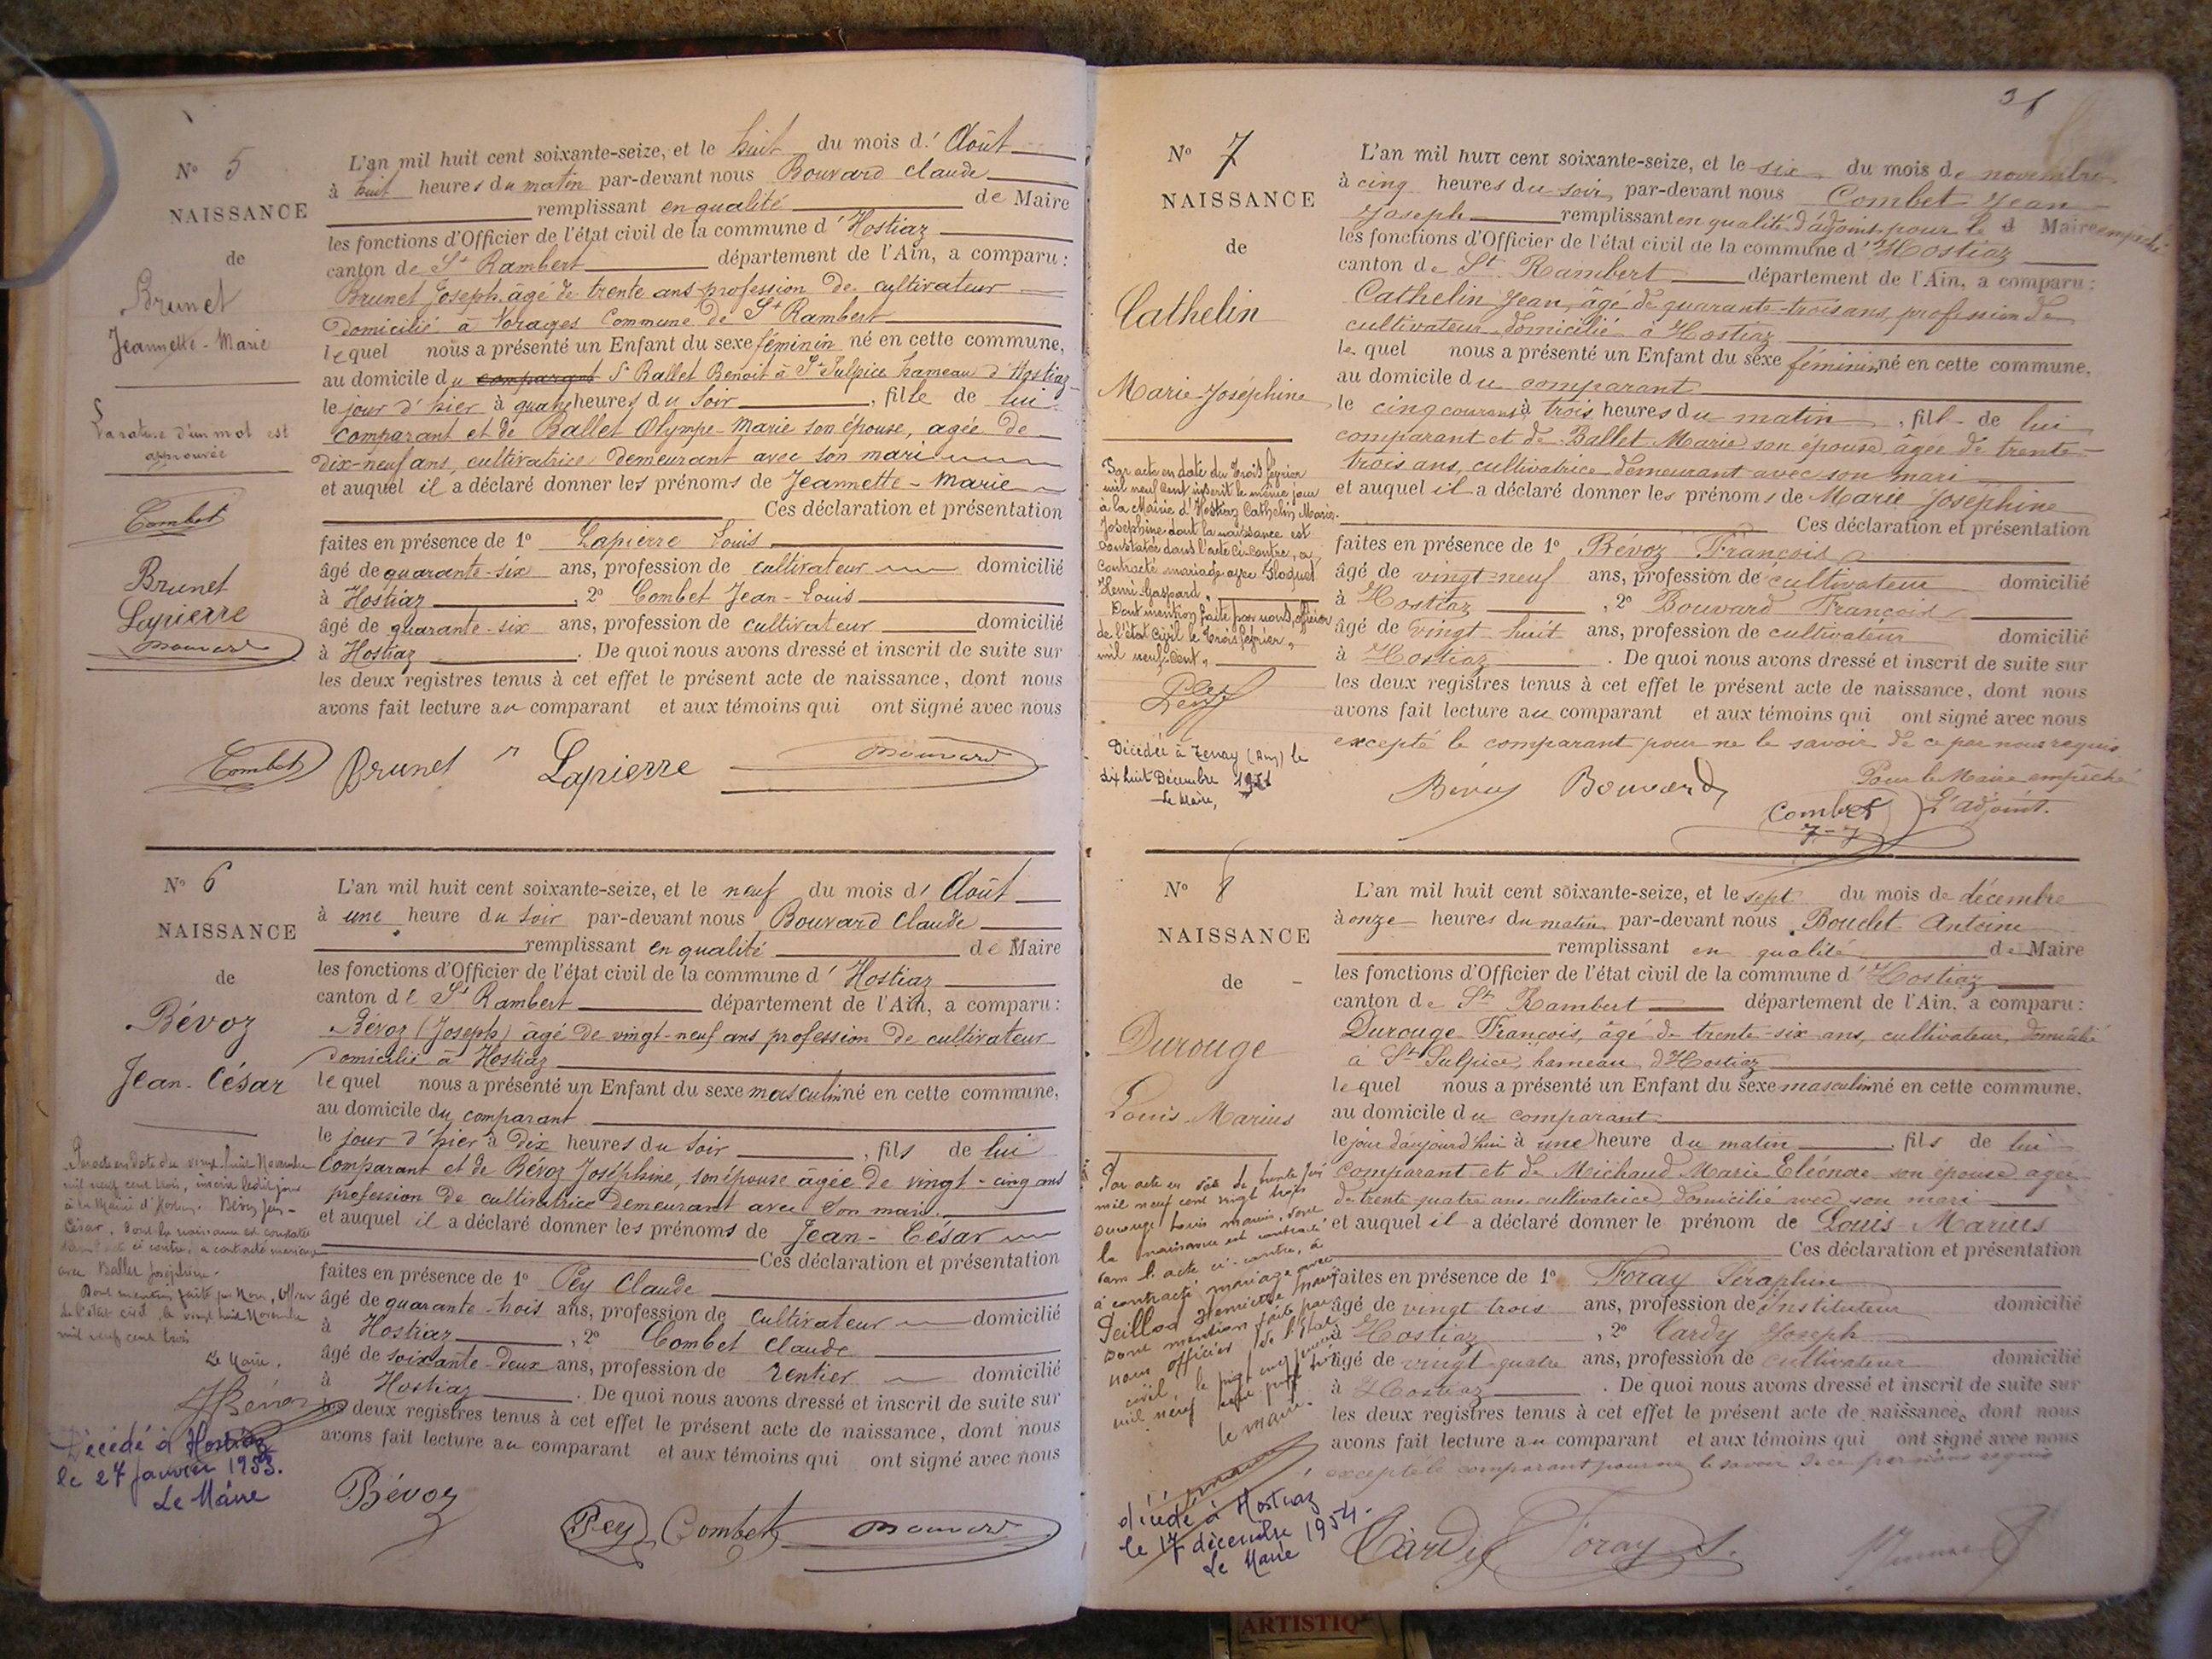 Nº 5
NAISSANCE
de
Brunet
Jeannette-Marie
La rature d'un mot est
approuvée
Combet
Brunet
Lapierre
Bouvard
L'an mil huit cent soixante-seize, et le huit du mois d' Août
à huit heures du matin par-devant nous Bouvard Claude
remplissant en qualité de Maire
les fonctions d'Officier de l'état civil de la commune d' Hostiaz
canton de St Rambert département de l'Ain, a comparu :
Brunet Joseph âgé de trente ans profession de cultivateur
domicilié à Vorages Commune de St Rambert
lequel nous a présenté un Enfant du sexe féminin né en cette commune,
au domicile du comparant Sr Ballet Benoit à St Sulpice hameau d'Hostiaz
le jour d'hier à quatre heures du soir , fille de lui
comparant et de Ballet Olympe-Marie son épouse, agée de
dix-neuf ans, cultivatrice demeurant avec son mari
et auquel il a déclaré donner les prénoms de Jeannette-Marie
Ces déclaration et présentation
faites en présence de 1º Lapierre Louis
âgé de quarante-six ans, profession de cultivateur domicilié
à Hostiaz , 2º Combet Jean-Louis
âgé de quarante-six ans, profession de cultivateur domicilié
à Hostiaz . De quoi nous avons dressé et inscrit de suite sur
les deux registres tenus à cet effet le présent acte de naissance, dont nous
avons fait lecture au comparant et aux témoins qui ont signé avec nous
Combet Brunet Lapierre Bouvard
Nº 6
NAISSANCE
de
Bévoz
Jean-César
Par acte en date du vingt-huit Novembre
mil neuf cent trois, inscrit ledit jour
à la Mairie d'Hostiaz. Bévoz Jean-
César, dont la naissance est constatée
dans l'acte ci contre, a contracté mariage
avec Ballet Joséphine.
Dont mention faite par Nous, Officier
de l'état civil le vingt huit Novembre
mil neuf cent trois
Le Maire,
Décédé à Hostiaz
le 27 janvier 1953.
Le Maire
L'an mil huit cent soixante-seize, et le neuf du mois d' Août
à une heure du soir par-devant nous Bouvard Claude
remplissant en qualité de Maire
les fonctions d'Officier de l'état civil de la commune d' Hostiaz
canton de St Rambert département de l'Ain, a comparu :
Bévoz (Joseph) âgé de vingt-neuf ans profession de cultivateur
domicilié à Hostiaz
lequel nous a présenté un Enfant du sexe masculin né en cette commune,
au domicile du comparant
le jour d'hier à dix heures du soir , fils de lui
comparant et de Bévoz Joséphine, son épouse âgée de vingt-cinq ans
profession de cultivatrice demeurant avec son mari.
et auquel il a déclaré donner les prénoms de Jean-César
Ces déclaration et présentation
faites en présence de 1º Pey Claude
âgé de quarante-trois ans, profession de cultivateur domicilié
à Hostiaz , 2º Combet Claude
âgé de soixante-deux ans, profession de rentier domicilié
à Hostiaz . De quoi nous avons dressé et inscrit de suite sur
les deux registres tenus à cet effet le présent acte de naissance, dont nous
avons fait lecture au comparant et aux témoins qui ont signé avec nous
Bévoz Pey Combet Bouvard
Nº 7
NAISSANCE
de
Cathelin
Marie-Joséphine
Par acte en date du trois février
mil neuf cent inscrit le même jour
à la Mairie d'Hostiaz Cathelin Marie-
Joséphine dont la naissance est
constatée dans l'acte ci-contre, a
contracté mariage avec
Henri Gaspard
Dont mention faite par nous, officier
de l'état civil le trois février
mil neuf cent
Décédée à Tenay (Ain) le
dix huit Décembre
Le Maire,
L'an mil huit cent soixante-seize, et le six du mois de novembre
à cinq heures du soir, par-devant nous Combet Jean
Joseph remplissant en qualité d'adjoint pour le d Maire empêché
les fonctions d'Officier de l'état civil de la commune d' Hostiaz
canton de St Rambert département de l'Ain, a comparu :
Cathelin Jean, âgé de quarante-trois ans, profession de
cultivateur domicilié à Hostiaz
lequel nous a présenté un Enfant du sexe féminin né en cette commune,
au domicile du comparant
le cinq courant à trois heures du matin , fill de lui
comparant et de Ballet Marie son épouse âgée de trente-
trois ans, cultivatrice demeurant avec son mari
et auquel il a déclaré donner les prénoms de Marie Joséphine
Ces déclaration et présentation
faites en présence de 1º Bévoz François
âgé de vingt-neuf ans, profession de cultivateur domicilié
à Hostiaz , 2º Bouvard François
âgé de vingt huit ans, profession de cultivateur domicilié
à Hostiaz . De quoi nous avons dressé et inscrit de suite sur
les deux registres tenus à cet effet le présent acte de naissance, dont nous
avons fait lecture au comparant et aux témoins qui ont signé avec nous
excepté le comparant pour ne le savoir de ce par nous requis
Pour le Maire empêché
Bévoz Bouvard Combet L'adjoint.
Nº 8
NAISSANCE
de
Durouge
Louis-Marius
Par acte en date de trente
mil neuf cent vingt trois
Durouge Louis Marius, dont
la naissance est constatée
dans l'acte ci-contre, a
à contracté mariage avec
Peillod
Dont mention faite par
nous officier de l'état
civil, le
mil neuf cent vingt trois
le maire.
décédé à Hostiaz
le 17 décembre 1954.
Le Maire
L'an mil huit cent soixante-seize, et le sept du mois de décembre
à onze heures du matin par-devant nous Bouclet Antoine
remplissant en qualité de Maire
les fonctions d'Officier de l'état civil de la commune d' Hostiaz
canton de St Rambert département de l'Ain, a comparu :
Durouge François, âgé de trente-six ans, cultivateur, domicilié
à St Sulpice, hameau d'Hostiaz
lequel nous a présenté un Enfant du sexe masculin né en cette commune,
au domicile du comparant
le jour d'aujourd'hui à une heure du matin , fils de lui
comparant et de Michaud Marie Eléonore son épouse agée
de trente quatre ans cultivatrice, domicilié avec son mari
et auquel il a déclaré donner le prénom de Louis-Marius
Ces déclaration et présentation
faites en présence de 1º Foray Séraphin
âgé de vingt trois ans, profession de Instituteur domicilié
à Hostiaz , 2º Cardy Joseph
âgé de vingt-quatre ans, profession de cultivateur domicilié
à Hostiaz . De quoi nous avons dressé et inscrit de suite sur
les deux registres tenus à cet effet le présent acte de naissance, dont nous
avons fait lecture au comparant et aux témoins qui ont signé avec nous
excepté le comparant pour ne le savoir de ce par nous requis
Cardy Foray S.
ARTISTIQ